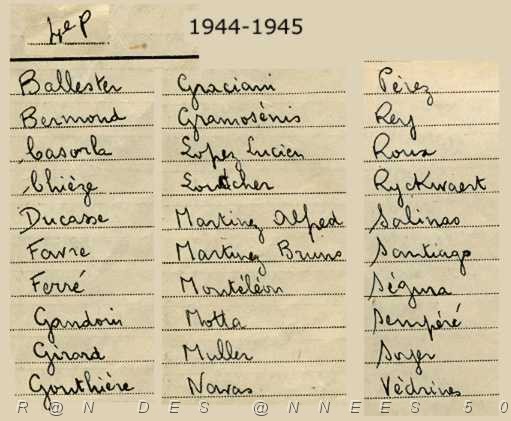 4e P
1944-1945
Ballester
Bermond
Casorla
Chièze
Ducasse
Favre
Ferré
Gandoin
Girard
Gouthière
Graciani
Gramosénis
Lopez Lucien
Martinez Alfred
Martinez Bruno
Montéléon
Motta
Muller
Navas
Pérez
Rey
Roux
Ryckwaert
Salinas
Santiago
Ségura
Sempéré
Soyer
Védrines
R@N DES @NNEES 50